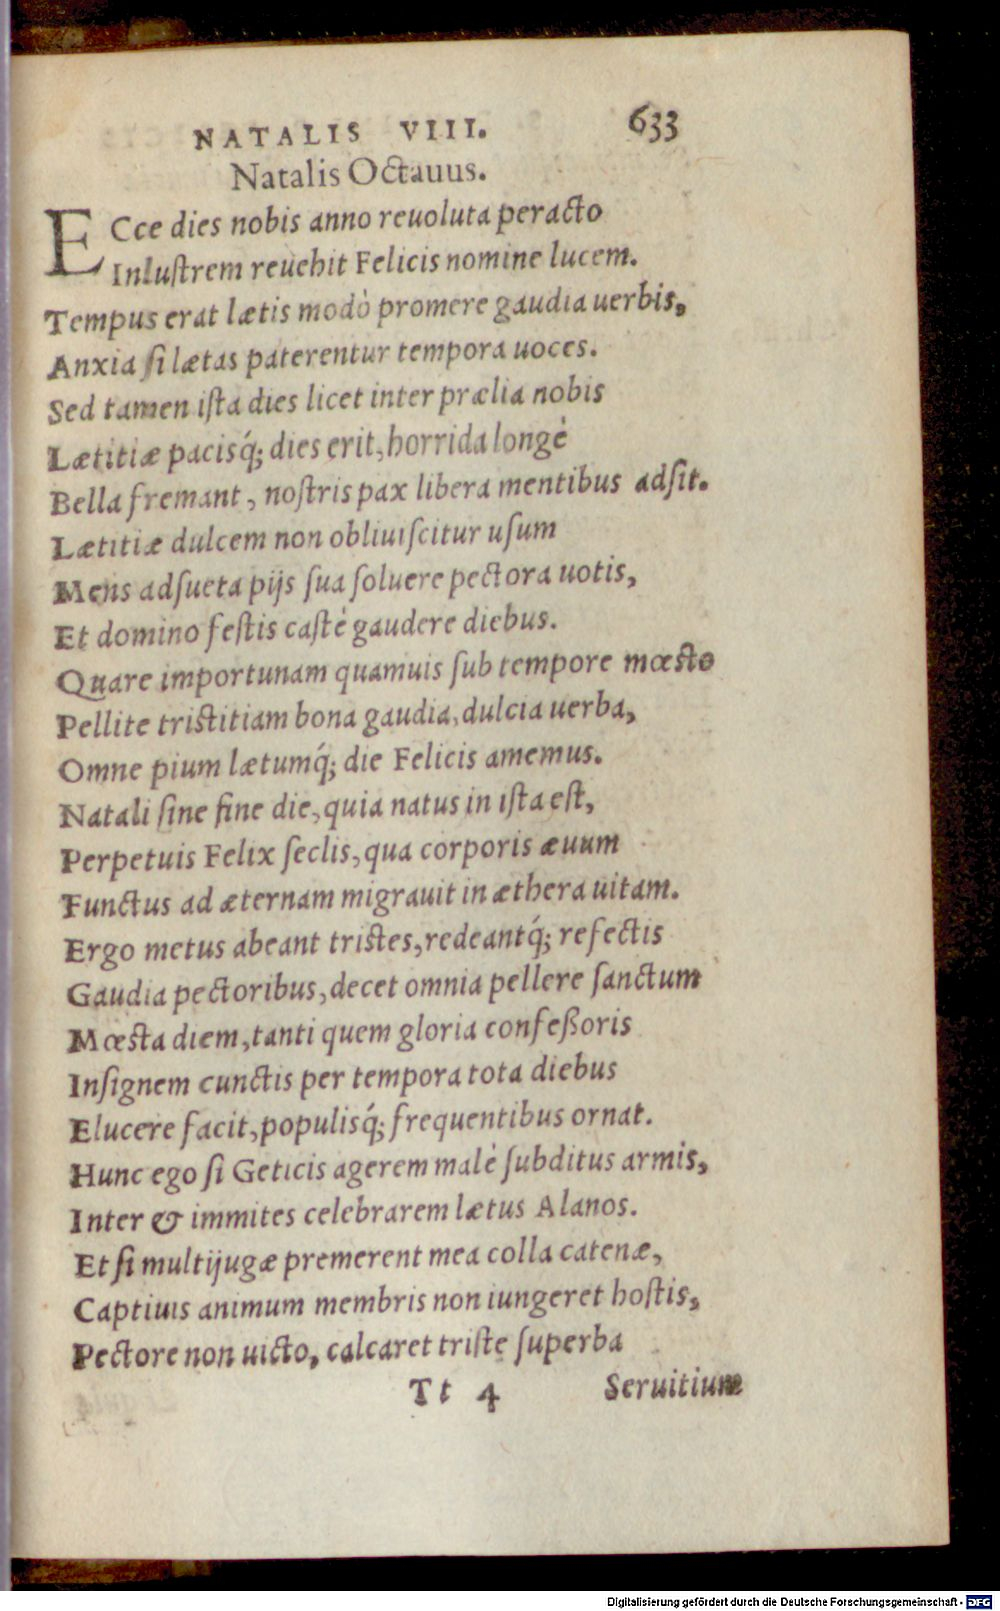 NATALIS VIII. 633
Natalis Octauus.
ECce dies nobis anno reuoluta peracto
Inluſtrem reuehit Felicis nomine lucem.
Tempus erat lætis modò promere gaudia uerbis,
Anxia ſi lætas paterentur tempora uoces.
Sed tamen iſta dies licet inter prælia nobis
Lætitiæ pacisq́; dies erit, horrida longè
Bella fremant, noſtris pax libera mentibus adſit.
Lætitiæ dulcem non obliuiſcitur uſum
Mens adſueta pijs ſua ſoluere pectora uotis,
Et domino feſtis caſtè gaudere diebus.
Quare importunam quamuis ſub tempore mœſto
Pellite triſtitiam bona gaudia, dulcia uerba,
Omne pium lætumq́; die Felicis amemus.
Natali ſine fine die, quia natus in iſta eſt,
Perpetuis Felix ſeclis, qua corporis æuum
Functus ad æternam migrauit in æthera uitam.
Ergo metus abeant triſtes, redeantq́; refectis
Gaudia pectoribus, decet omnia pellere ſanctum
Mœſta diem, tanti quem gloria confeßoris
Inſignem cunctis per tempora tota diebus
Elucere facit, populisq́; frequentibus ornat.
Hunc ego ſi Geticis agerem malè ſubditus armis,
Inter & immites celebrarem lætus Alanos.
Et ſi multijugæ premerent mea colla catenæ,
Captiuis animum membris non iungeret hoſtis,
Pectore non uicto, calcaret triſte ſuperba
Tt 4 Seruitium
Digitalisierung gefördert durch die Deutsche Forschungsgemeinschaft - DFG